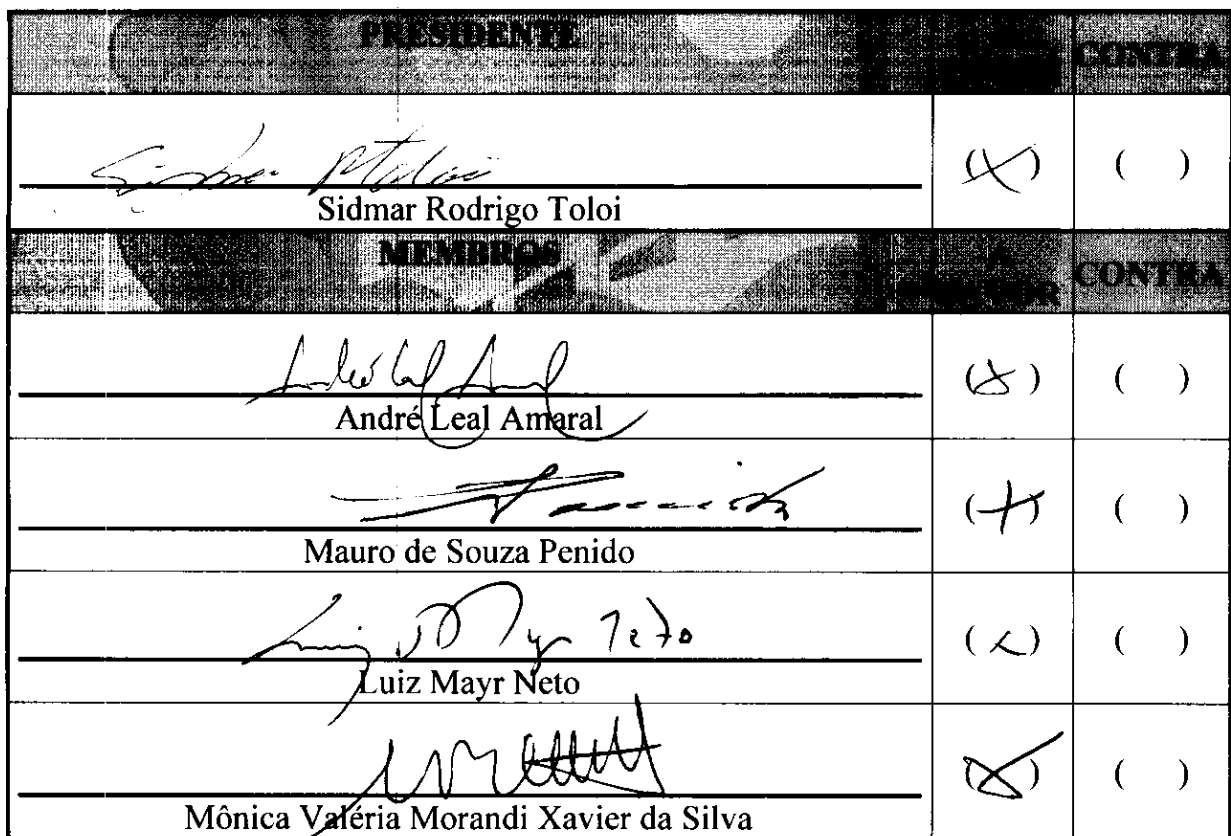 PRESIDENTE CONTRA
(X) ( )
Sidmar Rodrigo Toloi
MEMBROS A CONTRA
(X) ( )
André Leal Amaral
(X) ( )
Mauro de Souza Penido
Luiz Mayr Neto (X) ( )
Luiz Mayr Neto
(X) ( )
Mônica Valéria Morandi Xavier da Silva